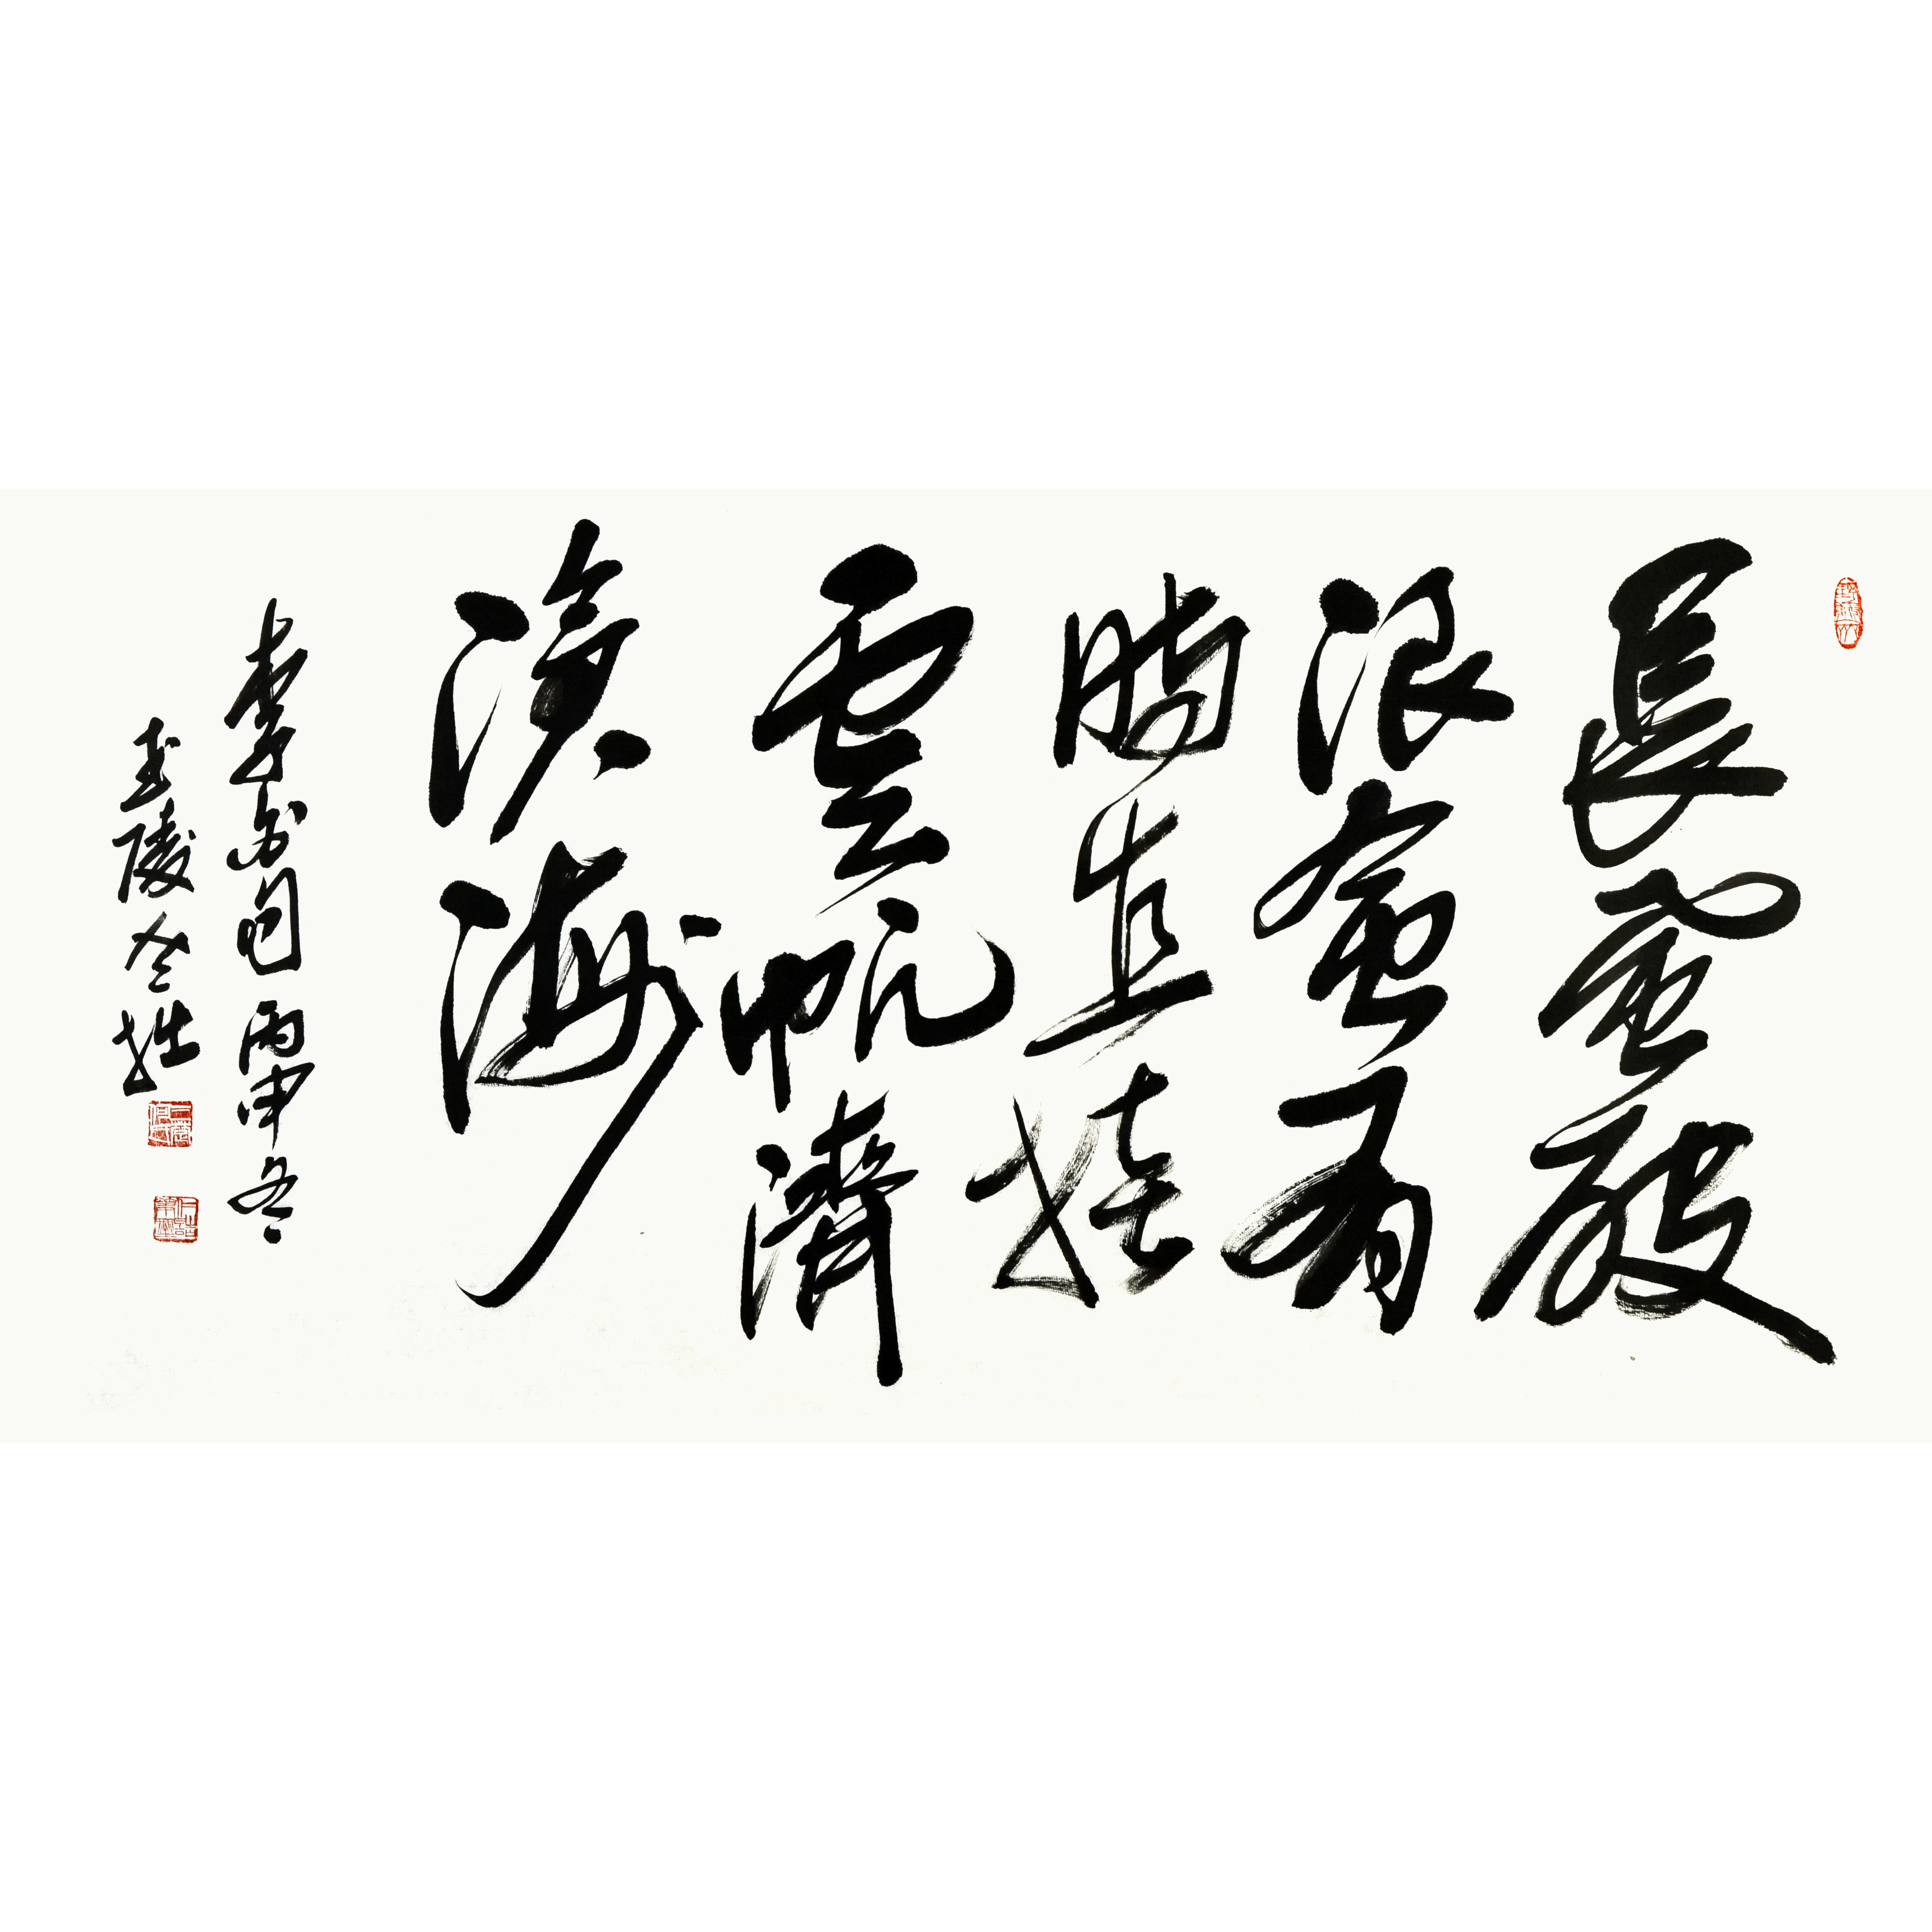 長風破
浪會有
時直挂
雲帆濟
滄海
李白詩句 丙申冬